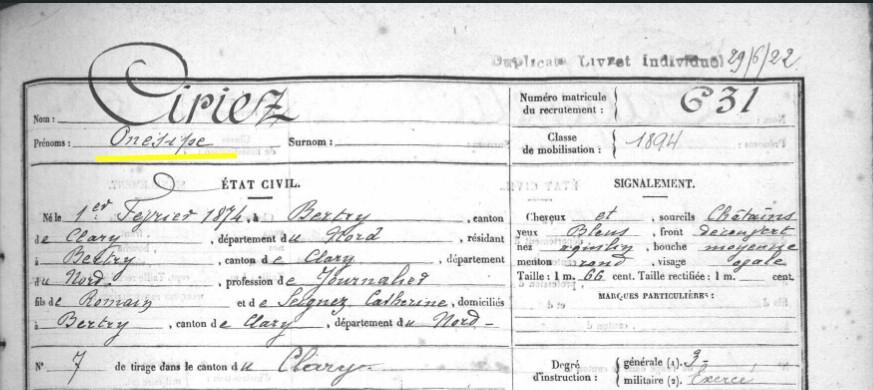 Duplicata Livret individuel 29/6/22
Nom : Ciriez
Prénoms : Onésipe Surnom :
Numéro matricule du recrutement : 631
Classe de mobilisation : 1894
ÉTAT CIVIL.
Né le 1er Février 1874, à Bertry, canton
de Clary, département du Nord, résidant
à Bertry, canton de Clary, département
du Nord, profession de Journalier
fils de Romain et de Seignez Catherine, domiciliés
à Bertry, canton de Clary, département du Nord -
N° 7 de tirage dans le canton du Clary
SIGNALEMENT.
Cheveux et , sourcils Châtains
yeux Bleus , front découvert
nez , bouche moyenne
menton rond , visage ovale
Taille : 1 m. 66 cent. Taille rectifiée : 1 m. cent.
MARQUES PARTICULIÈRES :
Degré d'instruction : générale (1). 3
militaire (2). Exercé